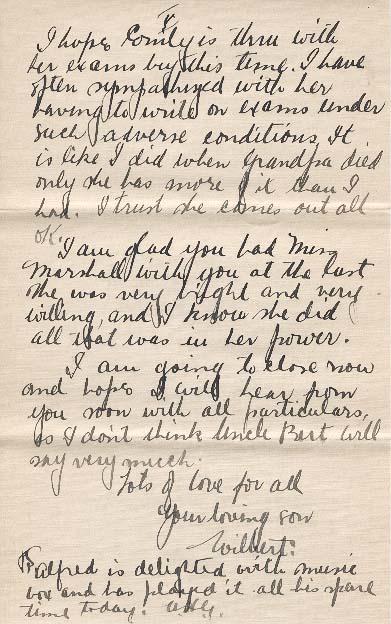 I hope Emily is thru with
her exams by this time. I have
often sympathized with her
having to write on exams under
such adverse conditions. It
is like I did when Grandpa died
only she has more of it than I
had. I trust she comes out all
OK.
I am glad you had Miss
Marshall with you at the last
she was very bright and very
willing, and I know she did
all that was in her power.
I am going to close now
and hope I will hear from
you soon with all particulars,
as I don't think Uncle Bart will
say very much.
Lots of love for all
Your loving son
Wilbert.
PS Alfred is delighted with music
box and has played it all his spare
time today.